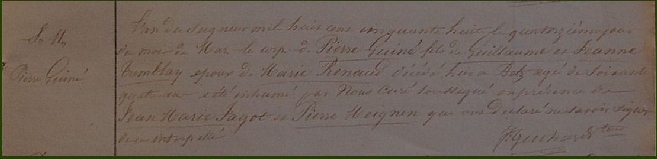 S. M.
Pierre Guiné
L'an du Seigneur mil huit cent cinquante huit le quatorzième jour
du mois de Mai le corps de Pierre Guiné fils de Guillaume et Jeanne
Tremblay époux de Marie Renaud décédé hier a Betz agé de soixante
quatre ans a été inhumé par Nous Curé soussigné en présence de
Jean Marie Jagot et Pierre qui ont déclaré ne savoir signer
de ce interpellé